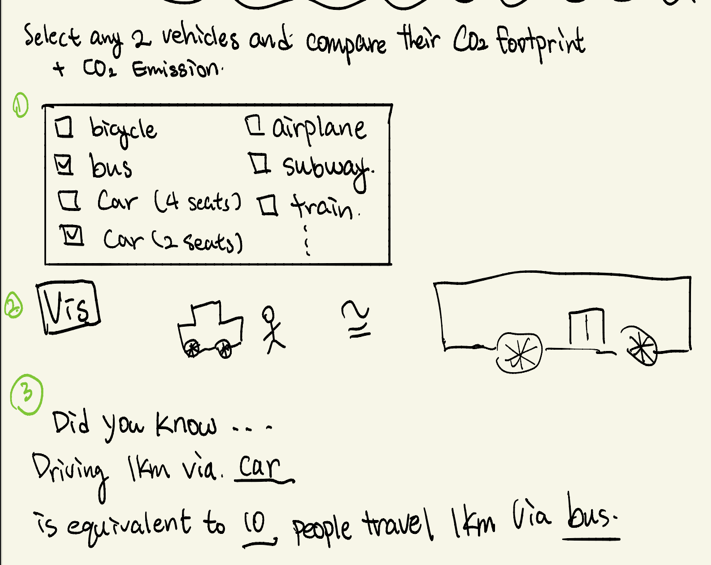 Select any 2 vehicles and compare their CO2 footprint
+ CO2 Emission.
①
bicycle airplane
bus subway.
Car (4 seats) train.
Car (2 seats)
② Vis ≅
③
Did you know ...
Driving 1km via. car
is equivalent to 10 people travel 1km Via bus.